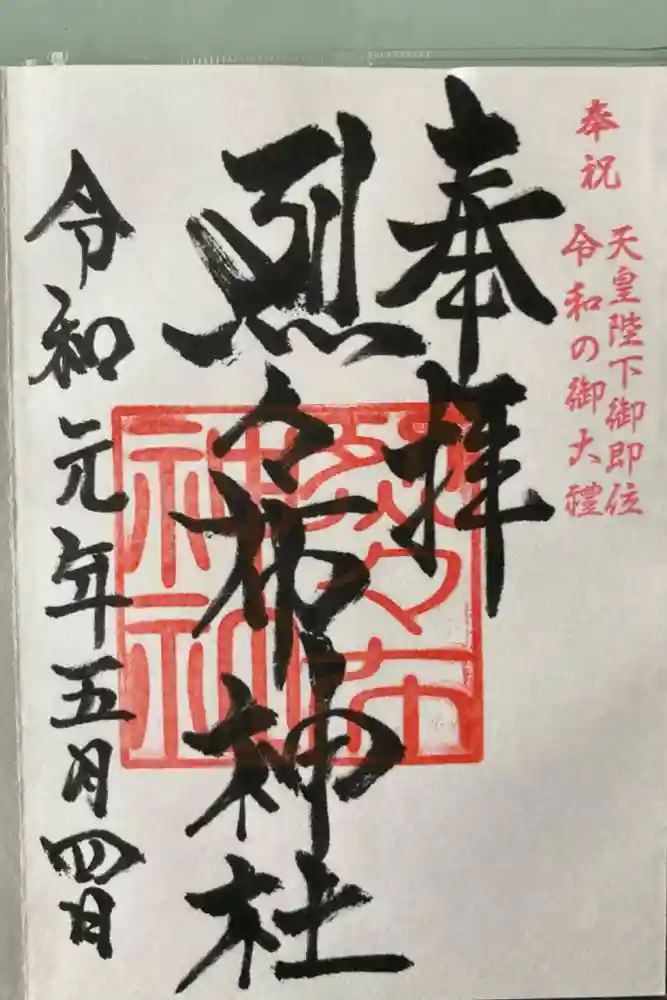 奉祝
天皇陛下御即位
令和の御大禮
奉拝
烈々布神社
令和元年五月四日